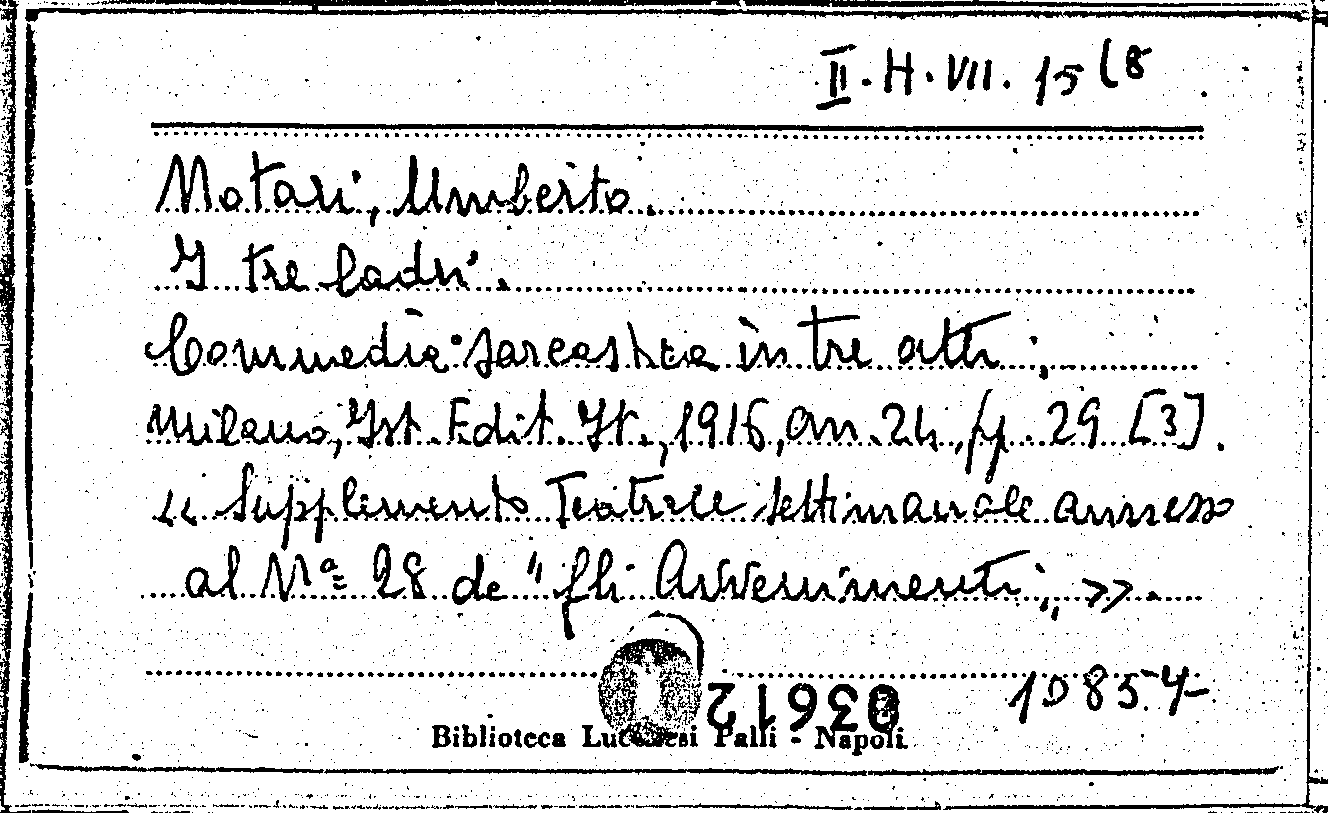 II. H. VII. 15 (8
Notari, Umberto.
I tre ladri.
Commedia sarcastica in tre atti;
Milano, Ist. Edit. It., 1916, in 24, pp. 29 [3].
« Supplemento Teatrale settimanale annesso
al Nº 28 de "Gli Avvenimenti„ ».
03612
10854
Biblioteca Lucchesi Palli - Napoli